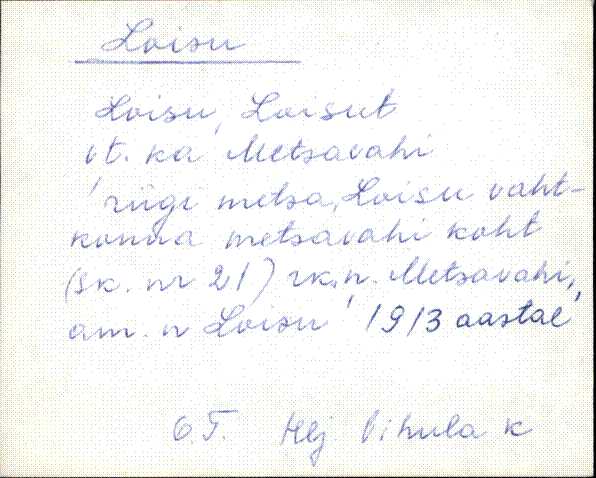 Loisu
Loisu, Loisut
vt. ka Metsavahi
riigi metsa, Loisu vaht-
konna metsavahi koht
(sk. nr 21) rk. n. Metsavahi,
am. n Loisu 1913 aastal
Hlj. Vihula k